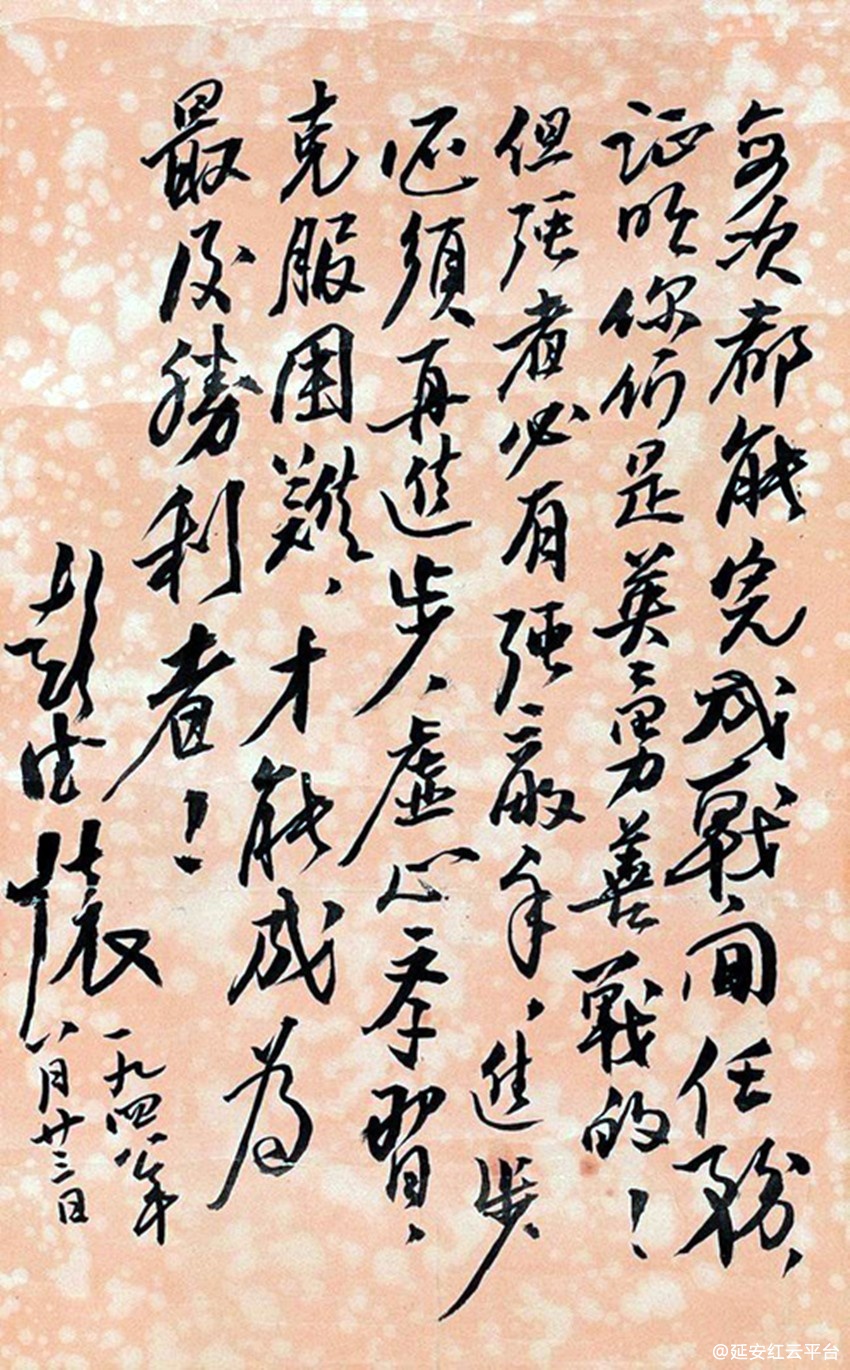 每次都能完成战鬥任務、
证明你们是英勇善戰的！
但强者必有强敵手、進步
还須再進步、虚心学習、
克服困難、才能成为
最後勝利者！
彭德懷
一九四八年
八月廿三日
@延安红云平台